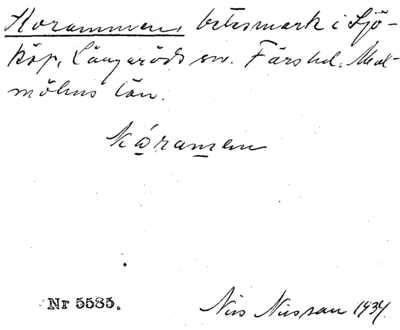 Horammen, betesmark i Sjö-
köp, Långaröds sn. Färs hd. Mal-
möhus län.
Nr 5585.
Nils Nilsson 1934.